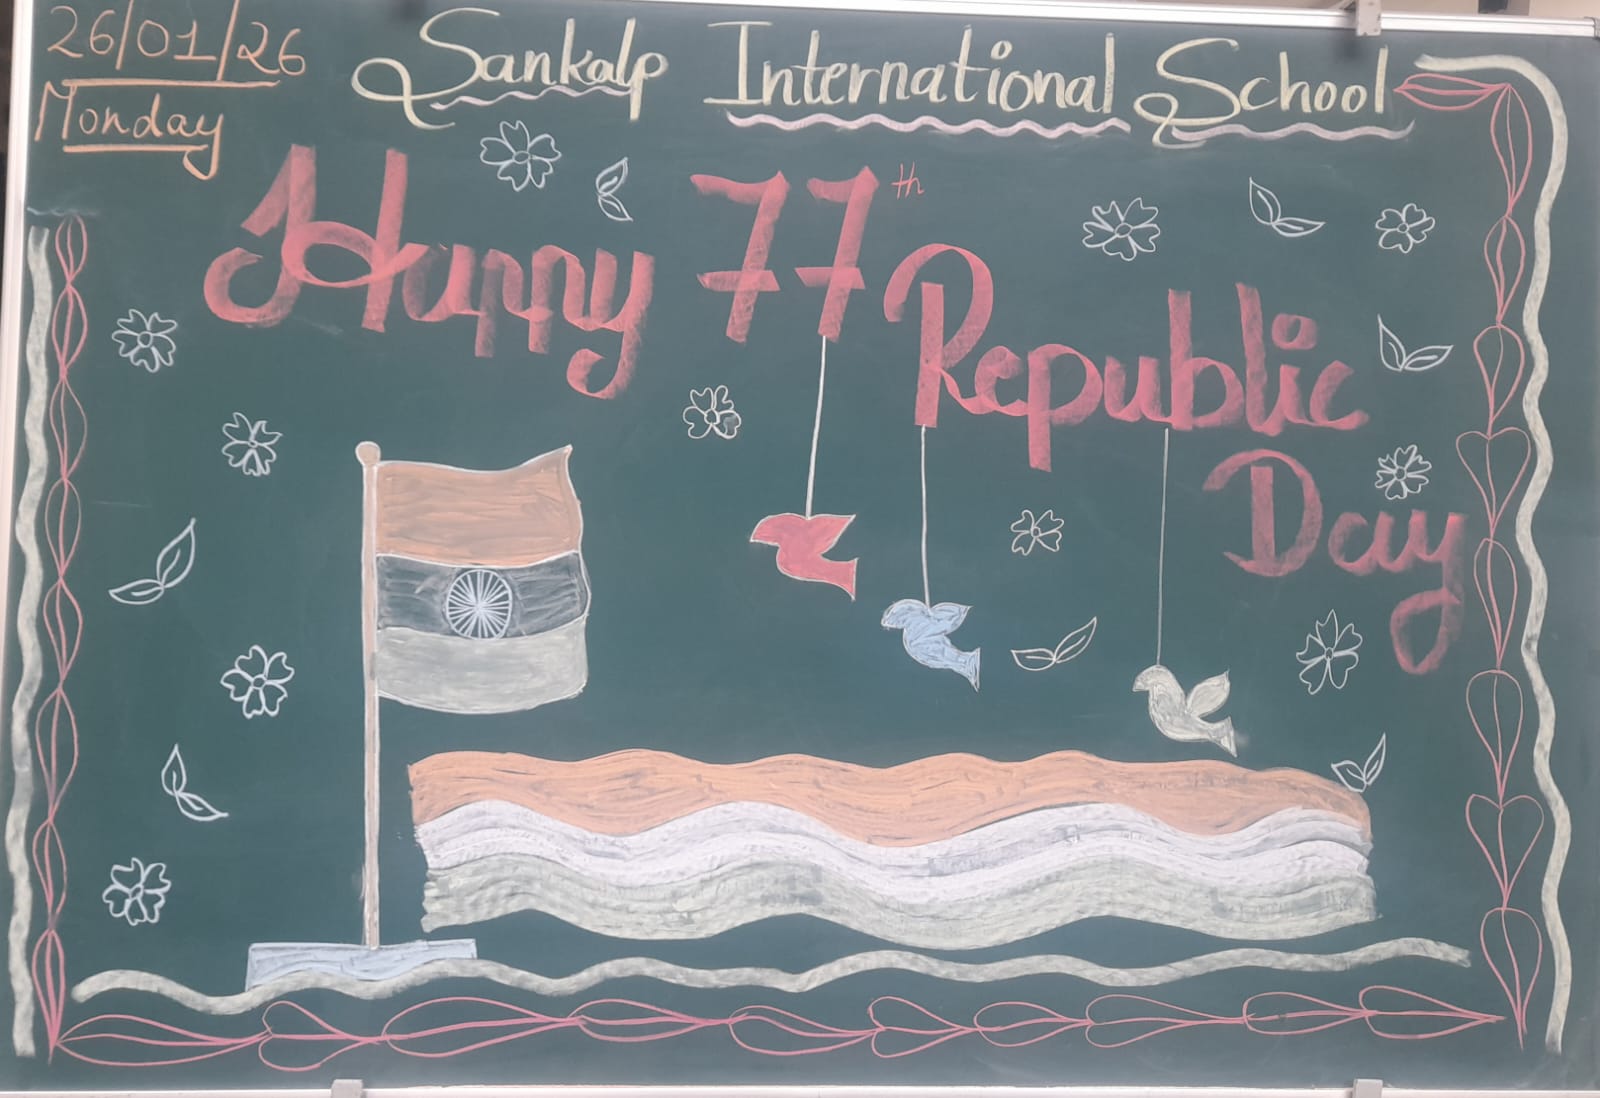 26/01/26
Monday
Sankalp International School
Happy 77th Republic
Day